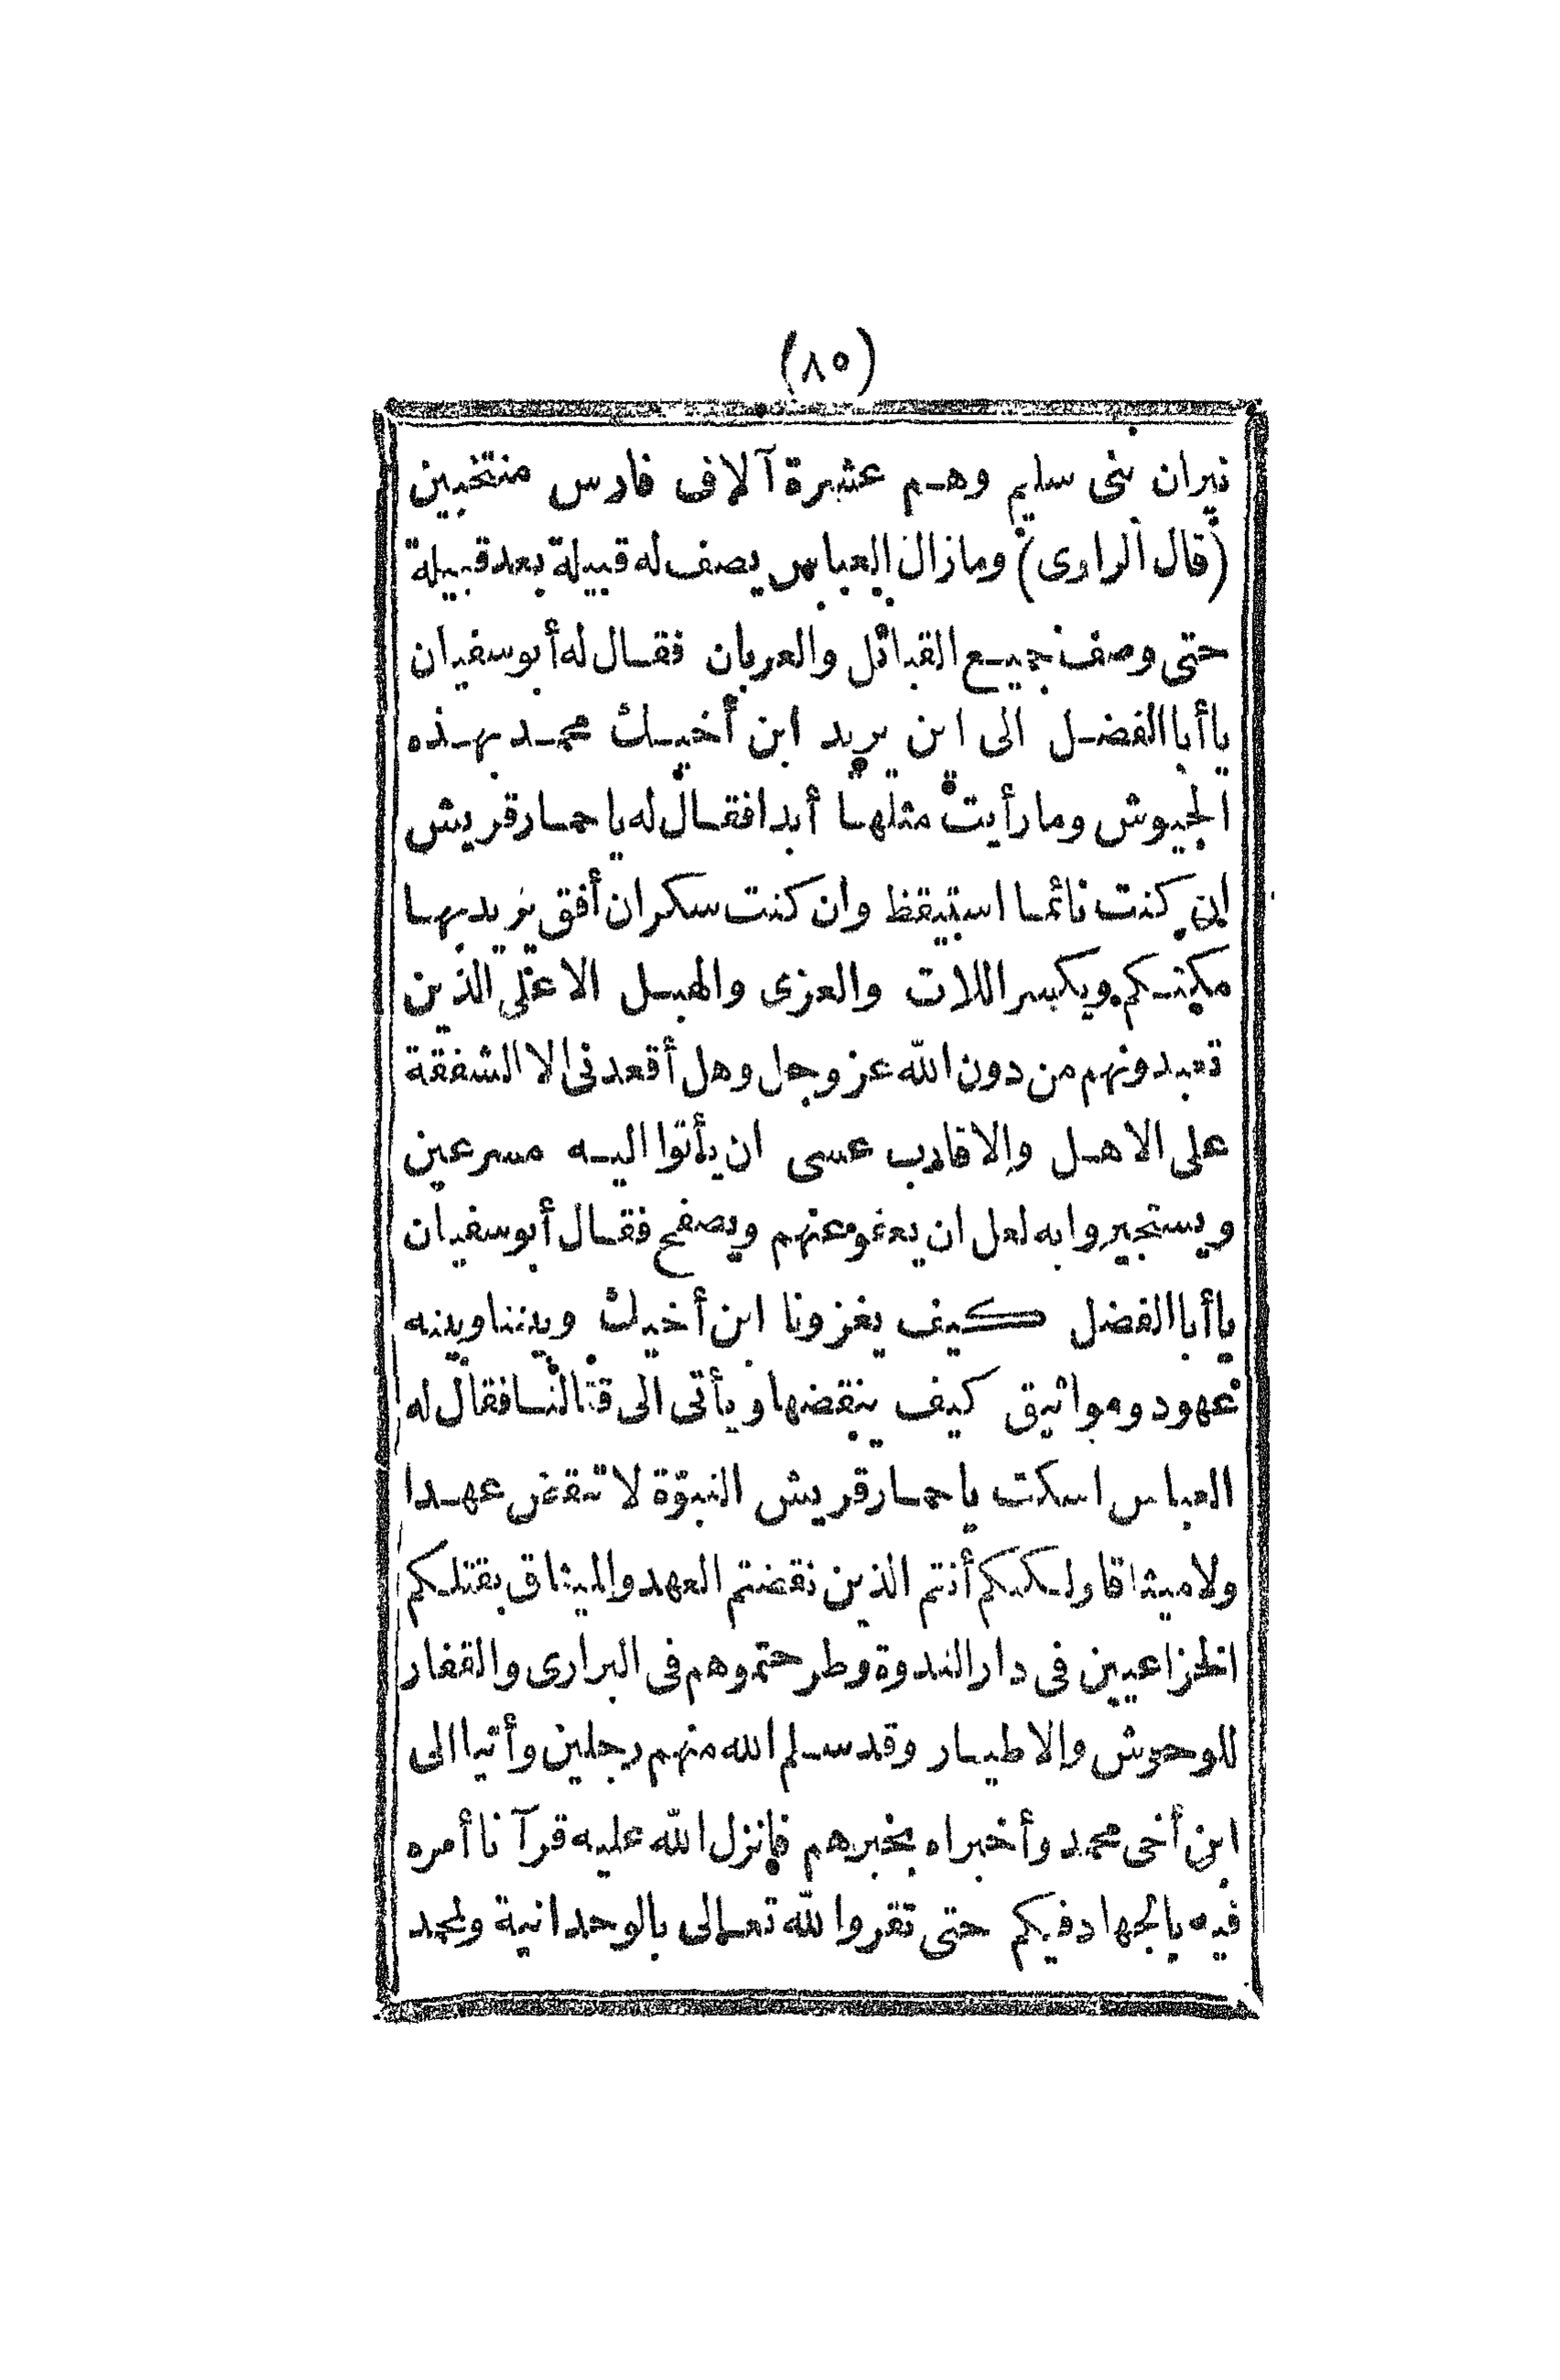 (٨٥)
نيران بنى سليم وهم عشرة آلاف فارس منتخبين
(قال الراوى) ومازال العباس يصف له قبيلة بعد قبيلة
حتى وصف جميع القبائل والعربان فقال له أبوسفيان
ياأباالفضل الى اين يريد ابن أخيك محمد بهذه
الجيوش ومارأيت مثلها أبدا فقال له ياحمار قريش
ان كنت نائما استيقظ وان كنت سكران أفق يريد بها
مكتكم ويكسر اللات والعزى والهبل الاعلى الذين
تعبدونهم من دون الله عز وجل وهل أقعدنى الا الشفقة
على الاهل والاقارب عسى ان يأتوا اليه مسرعين
ويستجيروا به لعل ان يعفو عنهم ويصفح فقال أبوسفيان
ياأباالفضل كيف يغزونا ابن أخيك وبيننا وبينه
عهود ومواثيق كيف ينقضها ويأتى الى قتالنا فقال له
العباس اسكت ياحمار قريش النبوّة لا تنقض عهدا
ولا ميثاقا ولكنكم أنتم الذين نقضتم العهد والميثاق بقتلكم
الخزاعيين فى دار الندوة وطرحتموهم فى البرارى والقفار
للوحوش والاطيار وقد سلم الله منهم رجلين وأتيا الى
ابن أخى محمد وأخبراه بخبرهم فانزل الله عليه قرآنا أمره
فيه بالجهاد فيكم حتى تقروا لله تعالى بالوحدانية ولمحمد